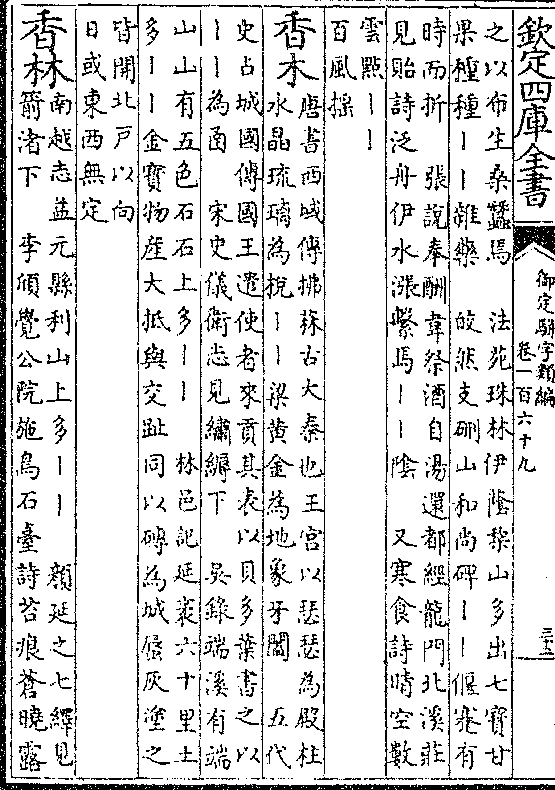 欽定四庫全書
御定駢字類編
卷一百六十九
三十五
之以布生桑蠶馬　法苑珠林伊蔭犂山多出七寶甘
果種種丨丨雜藥　皎然支硎山和尚碑丨丨偃蹇有
時而折　張說奉酬韋祭酒自湯還都經龍門北溪莊
見貽詩泛舟伊水漲繫馬丨丨陰　又寒食詩晴空數
雲點丨丨
百風揺
香木
唐書西域傳拂菻古大秦也王宫以瑟瑟為殿柱
水晶琉璃為梲丨丨梁黄金為地象牙闔　五代
史占城國傳國王遣使者來貢其表以貝多葉書之以
丨丨為函　宋史儀衛志見繡褥下　吳錄端溪有端
山山有五色石石上多丨丨　林邑記延袤六十里土
多丨丨金寶物産大抵與交趾同以磚為城蜃灰塗之
皆開北戸以向
日或東西無定
香林
南越志盆元縣利山上多丨丨　顔延之七繹見
箭渚下　李頎覺公院施鳥石臺詩苔痕蒼曉露